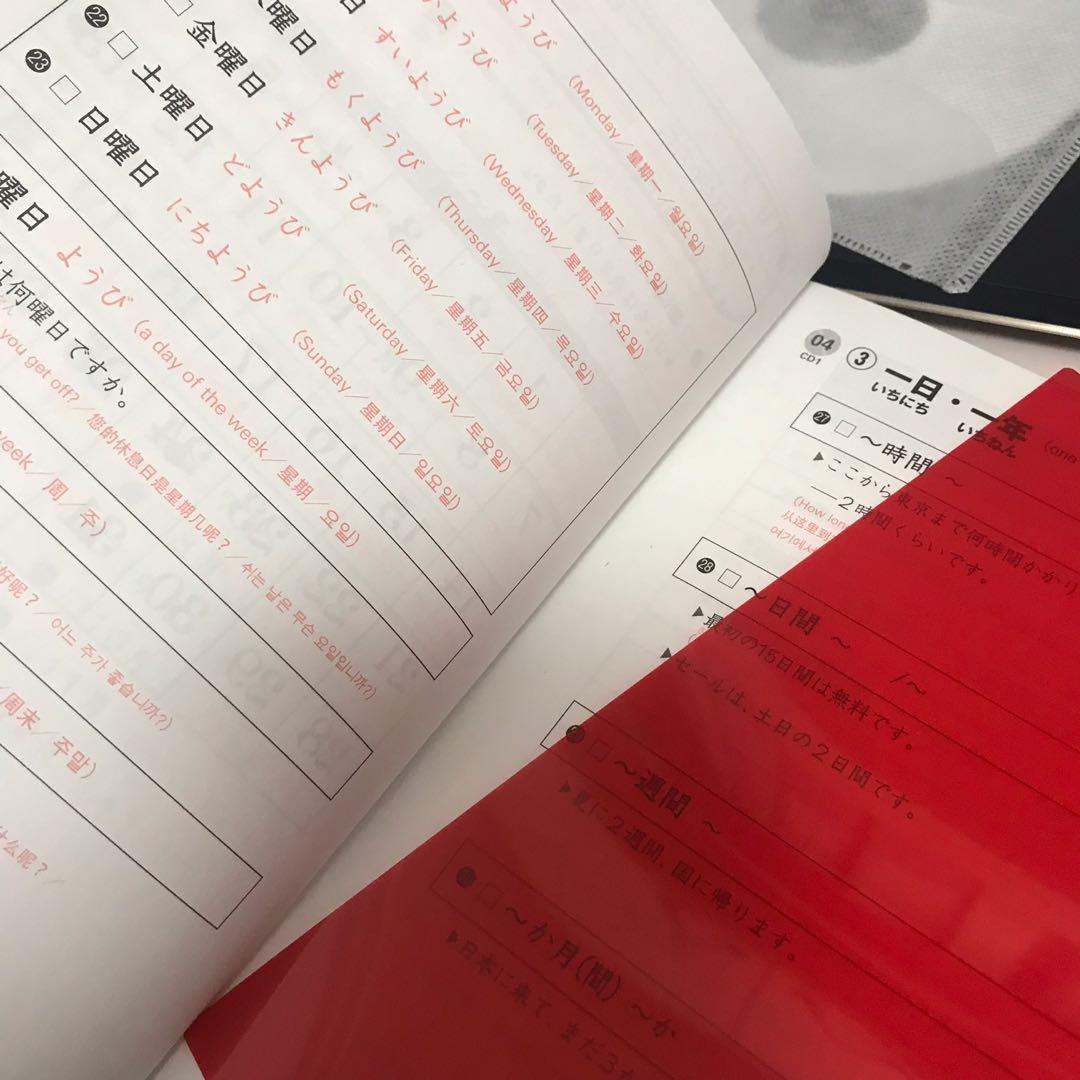 ようび (Monday／星期一／월요일)
いようび (Tuesday／星期二／화요일)
すいようび (Wednesday／星期三／수요일)
曜日 もくようび (Thursday／星期四／목요일)
金曜日 きんようび (Friday／星期五／금요일)
22 土曜日 どようび (Saturday／星期六／토요일)
23 日曜日 にちようび (Sunday／星期日／일요일)
曜日 ようび (a day of the week／星期／요일)
は何曜日ですか。
you get off?／您的休息日是星期几呢？／쉬는 날은 무슨 요일입니까?)
week／周／주)
好呢？／어느 주가 좋습니까?)
周末／주말)
什么呢？／
04
CD1
③ 一日・一年 (one
いちにち いちねん
27 ～時間 ～
▶ここから東京まで何時間かかり
―2時間くらいです。
(How lon
从这里到
여기에서
28 ～日間 ～ /～
▶最初の15日間は無料です。
▶セールは、土日の2日間です。
～週間 ～
▶夏に2週間、国に帰ります。
～か月(間) ～か
▶日本に来て、まだ3か